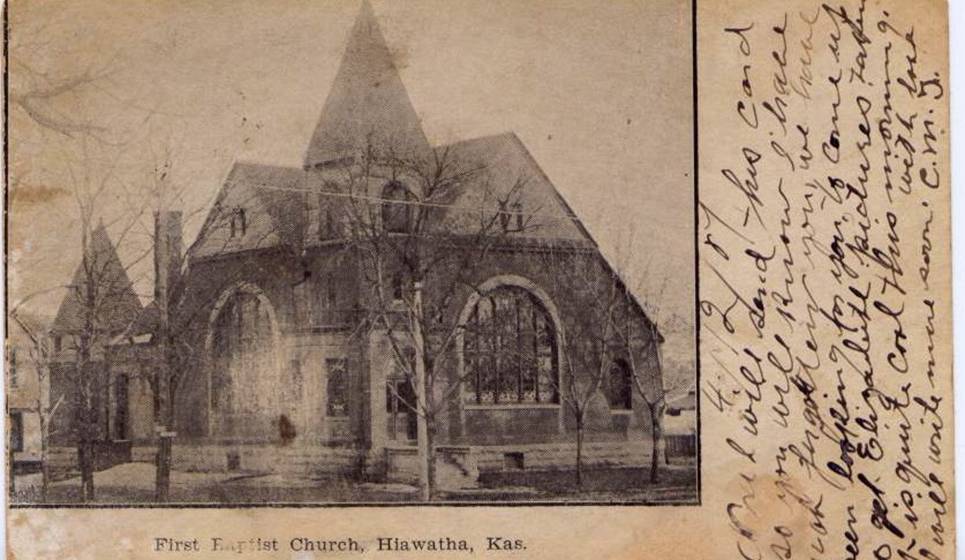 First Baptist Church, Hiawatha, Kas.
will send this card
so you will know I have
not forgotten you, we have
been looking for you to come up
& get Elizabeth pictures taken
is quite cool this morning.
will write more soon. with love
C.M.J.